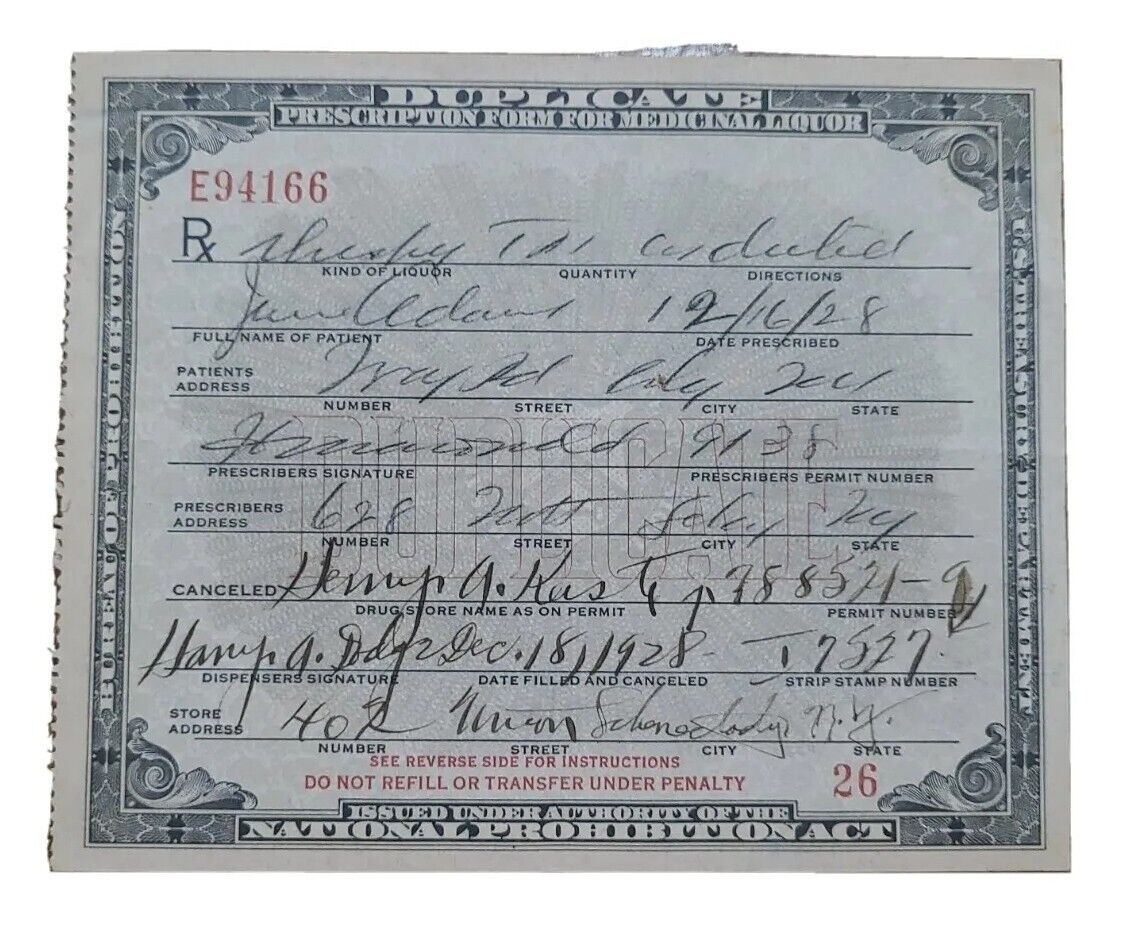 DUPLICATE
PRESCRIPTION FORM FOR MEDICINAL LIQUOR
E94166
Rx Whisky as directed
KIND OF LIQUOR QUANTITY DIRECTIONS
Jane Adams 12/16/28
FULL NAME OF PATIENT DATE PRESCRIBED
PATIENTS ADDRESS Troy Rd
NUMBER STREET CITY STATE
9138
PRESCRIBERS SIGNATURE PRESCRIBERS PERMIT NUMBER
PRESCRIBERS ADDRESS 628 Ny
NUMBER STREET CITY STATE
CANCELED
DRUG STORE NAME AS ON PERMIT PERMIT NUMBER
Dec. 18, 1928 17527
DISPENSERS SIGNATURE DATE FILLED AND CANCELED STRIP STAMP NUMBER
STORE ADDRESS 402 Union Schenectady N.Y.
NUMBER STREET CITY STATE
SEE REVERSE SIDE FOR INSTRUCTIONS
DO NOT REFILL OR TRANSFER UNDER PENALTY
26
ISSUED UNDER AUTHORITY OF THE
NATIONAL PROHIBITION ACT
BUREAU OF PROHIBITION
DUPLICATE